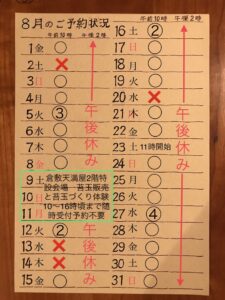 8月のご予約状況
午前10時 午後2時
1 金 ◯
2 土 ×
3 日 ◯
4 月 ◯
5 火 ◯
6 水 ◯
7 木 ◯
8 金 ◯
午後休み
9 土
10 日
11 月
倉敷天満屋2階特
設会場 苔玉販売
と苔玉づくり体験
10〜16時頃まで随
時受付予約不要
12 火 ②
13 水 ×
14 木 ×
15 金 ◯
午後休み
午前10時 午後2時
16 土 ②
17 日 ◯
18 月 ◯
19 火 ◯
20 水 ×
21 木 ◯
22 金 ◯
23 土 11時開始
24 日 ◯
25 月 ◯
26 火 ◯
27 水 ④
28 木 ◯
29 金 ◯
30 土 ◯
31 日 ◯
午後休み